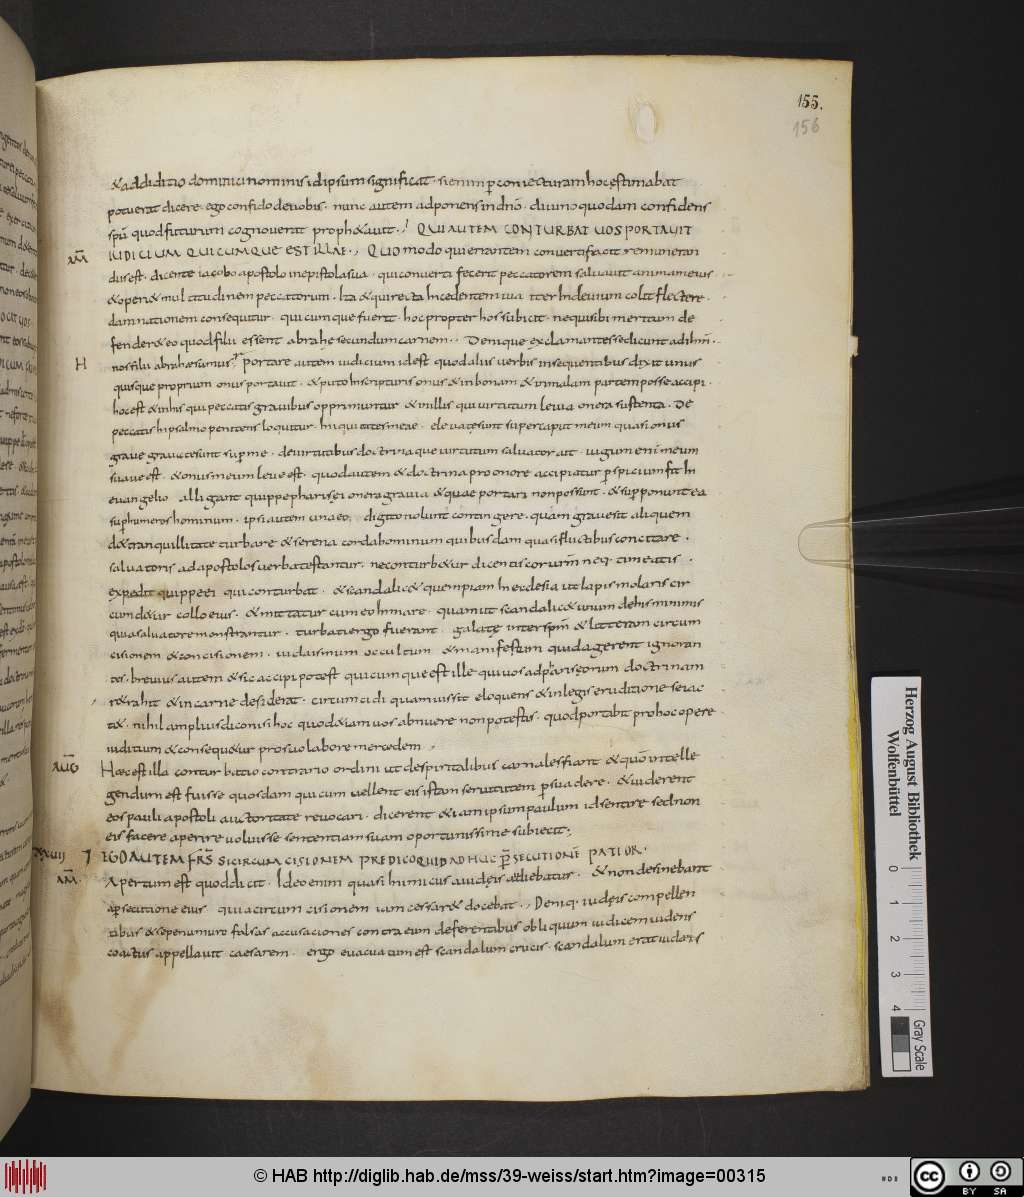 155.
156
&addiditio dominici nominis idipsum significat. si enim p coniecturam hoc estimabat
potuerat dicere. ego confido de uobis. nunc autem adponens in dno. diuino quodam confidens
spu quod futurum cognouerat prophetauit. QUI AUTEM CONTURBAT UOS PORTAUIT
AM IUDICIUM QUICUMQUE EST ILLAE. Quomodo qui errantem conuerti facit remuneran
dus est. dicente iacobo apostolo in epistola sua. qui conuerti fecerit peccatorem saluauit animam eius
&operi& multitudinem peccatorum. Ita & qui recta incedentem uia iter in deuium colit flectere.
damnationem consequitur. quicumque fuerit. hoc propter hos subicit. nequi sibi meritum de
fender& eo quod filii essent abrahe secundum carnem. Denique exclamantes se dicunt ad ihm.
H nos filii abrahae sumus. portare autem iudicium id est quod aliis uerbis in sequentibus dixit unus
quisque proprium onus portauit. & puto in scripturis onus & in bonam & in malam partem posse accipi.
hoc est & in his qui peccatis grauibus opprimuntur & in illis qui uirtutum leuia onera sustenta. De
peccatis in psalmo penitens loquitur. Iniquitates meae. eleuate sunt super caput meum quasi onus
graue grauate sunt super me. de uirtutibus doctrinaque uirtutum saluator ait. iugum enim meum
suaue est. & onus meum leue est. quod autem & doctrina pro onore accipiatur perspicuum fit In
euangelio alligant quippe pharisei onera grauia & quae portari non possunt. & supponunt ea
sup humeros hominum. ipsi autem uno eo, digito nolunt contingere. quam graue sit aliquem
de tranquillitate turbare & serena corda hominum quibusdam quasi fluctibus concitare.
saluatoris ad apostolos uerba testantur. ne conturb&ur dicentis cor urm neq. timeatis.
expedit quippe ei qui conturbat. & scandaliz& quempiam In ecclesia ut lapis molaris cir
cumd&ur collo eius. & mittatur cum eo In mare. quam ut scandaliz& unum de his minimis
qui a saluatore monstrantur. turbati ergo fuerant. galate inter spm & litteram circum
cisionem & concisionem. iudaismum occultum & manifestum quid agerent ignoran
tes. breuius autem & sic accipi potest quicumque est ille qui uos ad pariseorum doctrinam
r&rahit & in carne desiderat. circumcidi quamuis sit eloquens & in legis eruditione se iac
t&. nihil amplius dicam nisi hoc quod &iam uos abnuere non potestis. quod portabit pro hoc opere
iuditium & consequ&ur pro suo labore mercedem
AUG Haec est illa conturbatio contrario ordini ut de spiritalibus carnales fiant & quo intelle
gendum est fuisse quosdam qui cum uellent eis istam seruitutem persuadere. & uiderent
eos pauli apostoli auctoritate reuocari. dicerent &iam ipsum paulum id sentire sed non
eis facere aperire uoluisse sententiam suam oportunissime subiecit.
EGO AUTEM FRS SI CIRCUMCISIONEM PREDICO QUID ADHUC PSECUTIONE PATIOR.
AM Apertum est quod dicit. Ideo enim quasi Inimicus a iudeis odiebatur. & non desinebant
a psecutione eius quia circumcisionem iam cessare docebat. Deniq. iudeis compellen
tibus & sepenumero falsas accusationes contra eum deferentibus obliquum iudicem uidens
coactus appellauit caesarem. ergo euacuatum est scandalum crucis. scandalum erat iudaeis
Herzog August Bibliothek
Wolfenbüttel
0 1 2 3 4
Gray Scale
© HAB http://diglib.hab.de/mss/39-weiss/start.htm?image=00315
CC BY SA